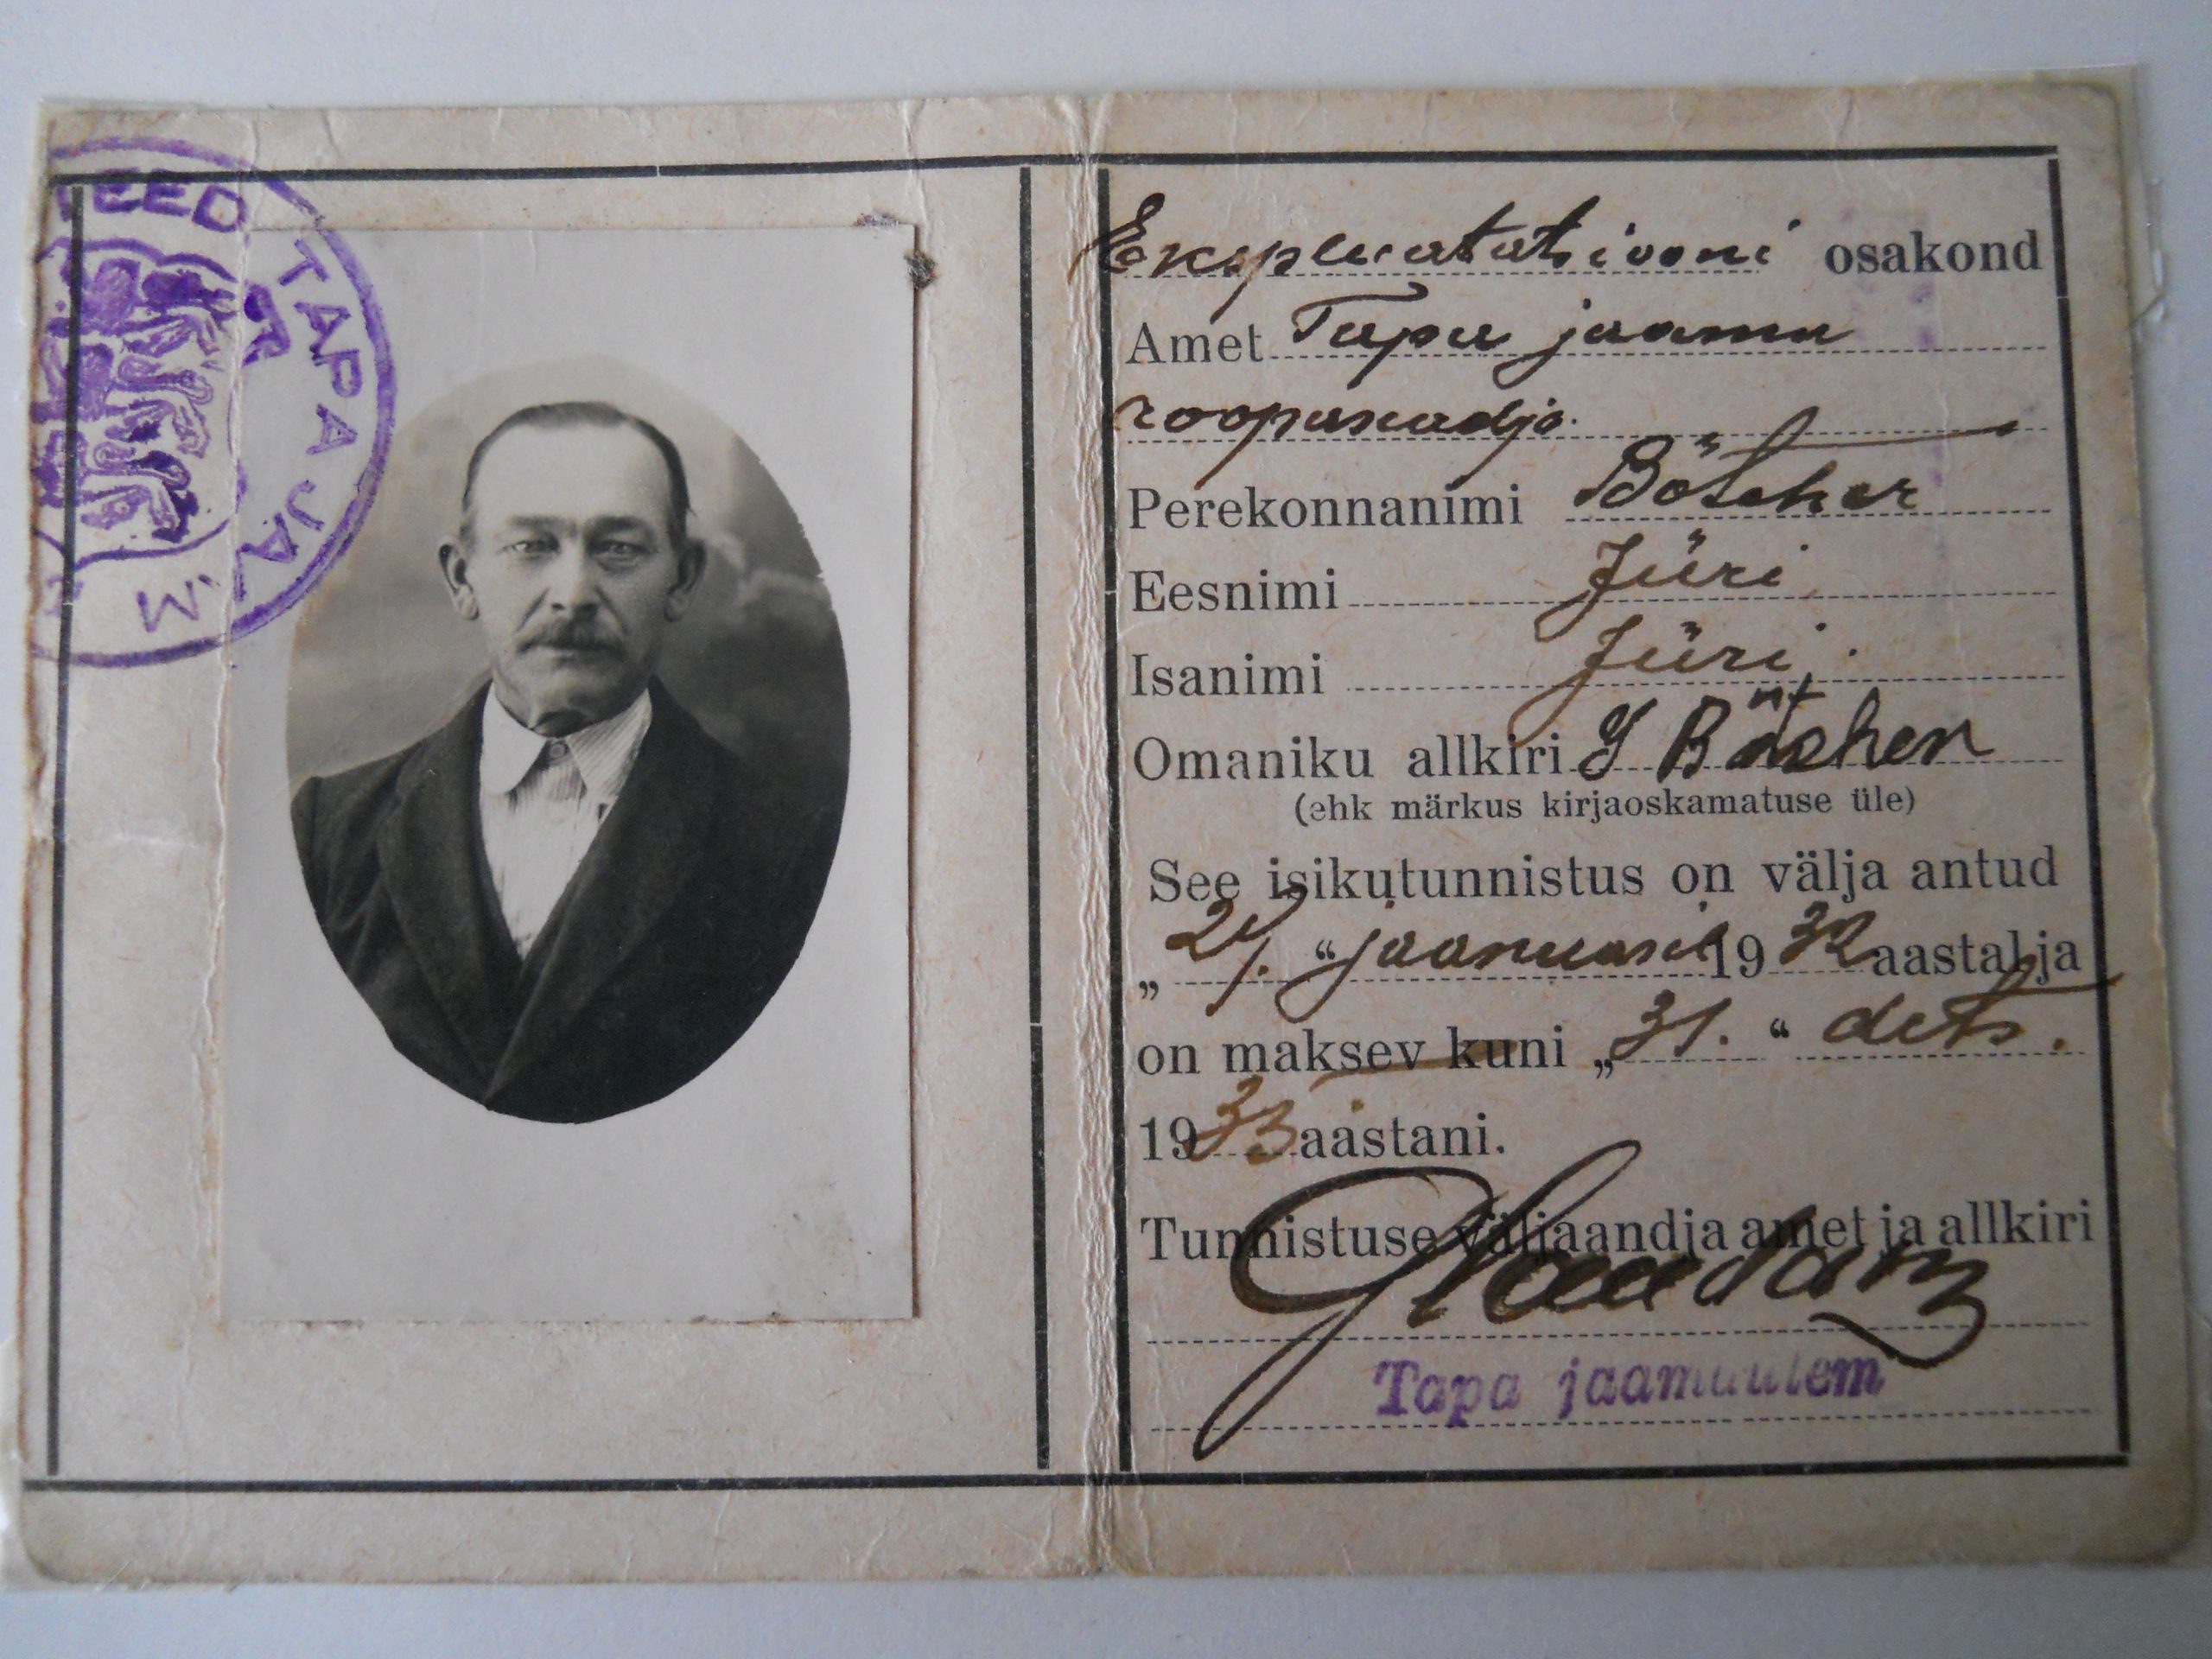 TEED TAPA JAAM
Ekspluatatsiooni osakond
Amet Tapa jaama
roopaseadja.
Perekonnanimi Bötcher
Eesnimi Jüri
Isanimi Jüri.
Omaniku allkiri J Bötcher
(ehk märkus kirjaoskamatuse üle)
See isikutunnistus on välja antud
„21. “ jaanuaril 1932 aastal ja
on maksev kuni „31. “ dets.
1933 aastani.
Tunnistuse väljaandja amet ja allkiri
Tapa jaamaülem